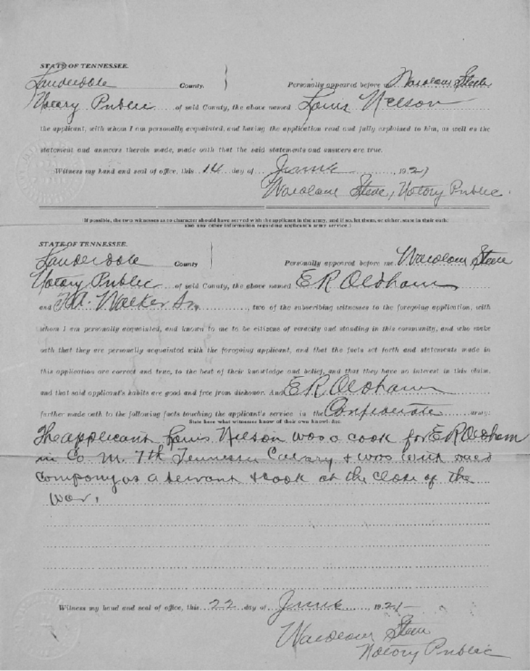 STATE OF TENNESSEE.
Lauderdale County. Personally appeared before
Notary Public of said County, the above named Louis Nelson
the applicant, with whom I am personally acquainted, and having the application read and fully explained to him, as well as the
statement and answers therein made, made oath that the said statements and answers are true.
Witness my hand and seal of office, this 14 day of June 1921
Notary Public.
If possible, the two witnesses as to character should have served with the applicant in the army, and if so, let them, or either, state in their oath
any other information regarding applicant's army service.
STATE OF TENNESSEE.
Lauderdale County Personally appeared before me
Notary Public of said County, the above named E R Oldham
and Walker Sr, two of the subscribing witnesses to the foregoing application, with
whom I am personally acquainted, and known to me to be citizens of veracity and standing in this community, and who make
oath that they are personally acquainted with the foregoing applicant, and that the facts set forth and statements made in
this application are correct and true, to the best of their knowledge and belief, and that they have no interest in this claim,
and that said applicant's habits are good and free from dishonor. And E R Oldham
further made oath to the following facts touching the applicant's service in the Confederate army:
State here what witnesses know of their own knowledge.
The applicant Louis Nelson was a cook for E R Oldham
in Co M 7th Tennessee Calvary & was with said
Company as a servant & cook at the close of the
war.
Witness my hand and seal of office, this 22 day of June 1921
Notary Public